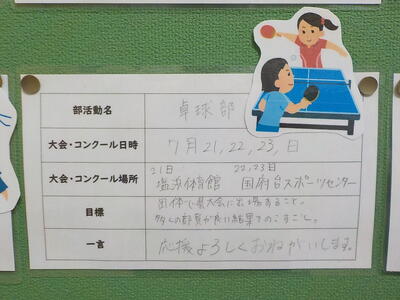 部活動名 卓球部
大会・コンクール日時 7月21,22,23,日
21日 22,23日
大会・コンクール場所 塩浜体育館 国府台スポーツセンター
団体で県大会に出場すること。
目標 多くの部員が良い結果でのこすこと。
一言 応援よろしくおねがいします。